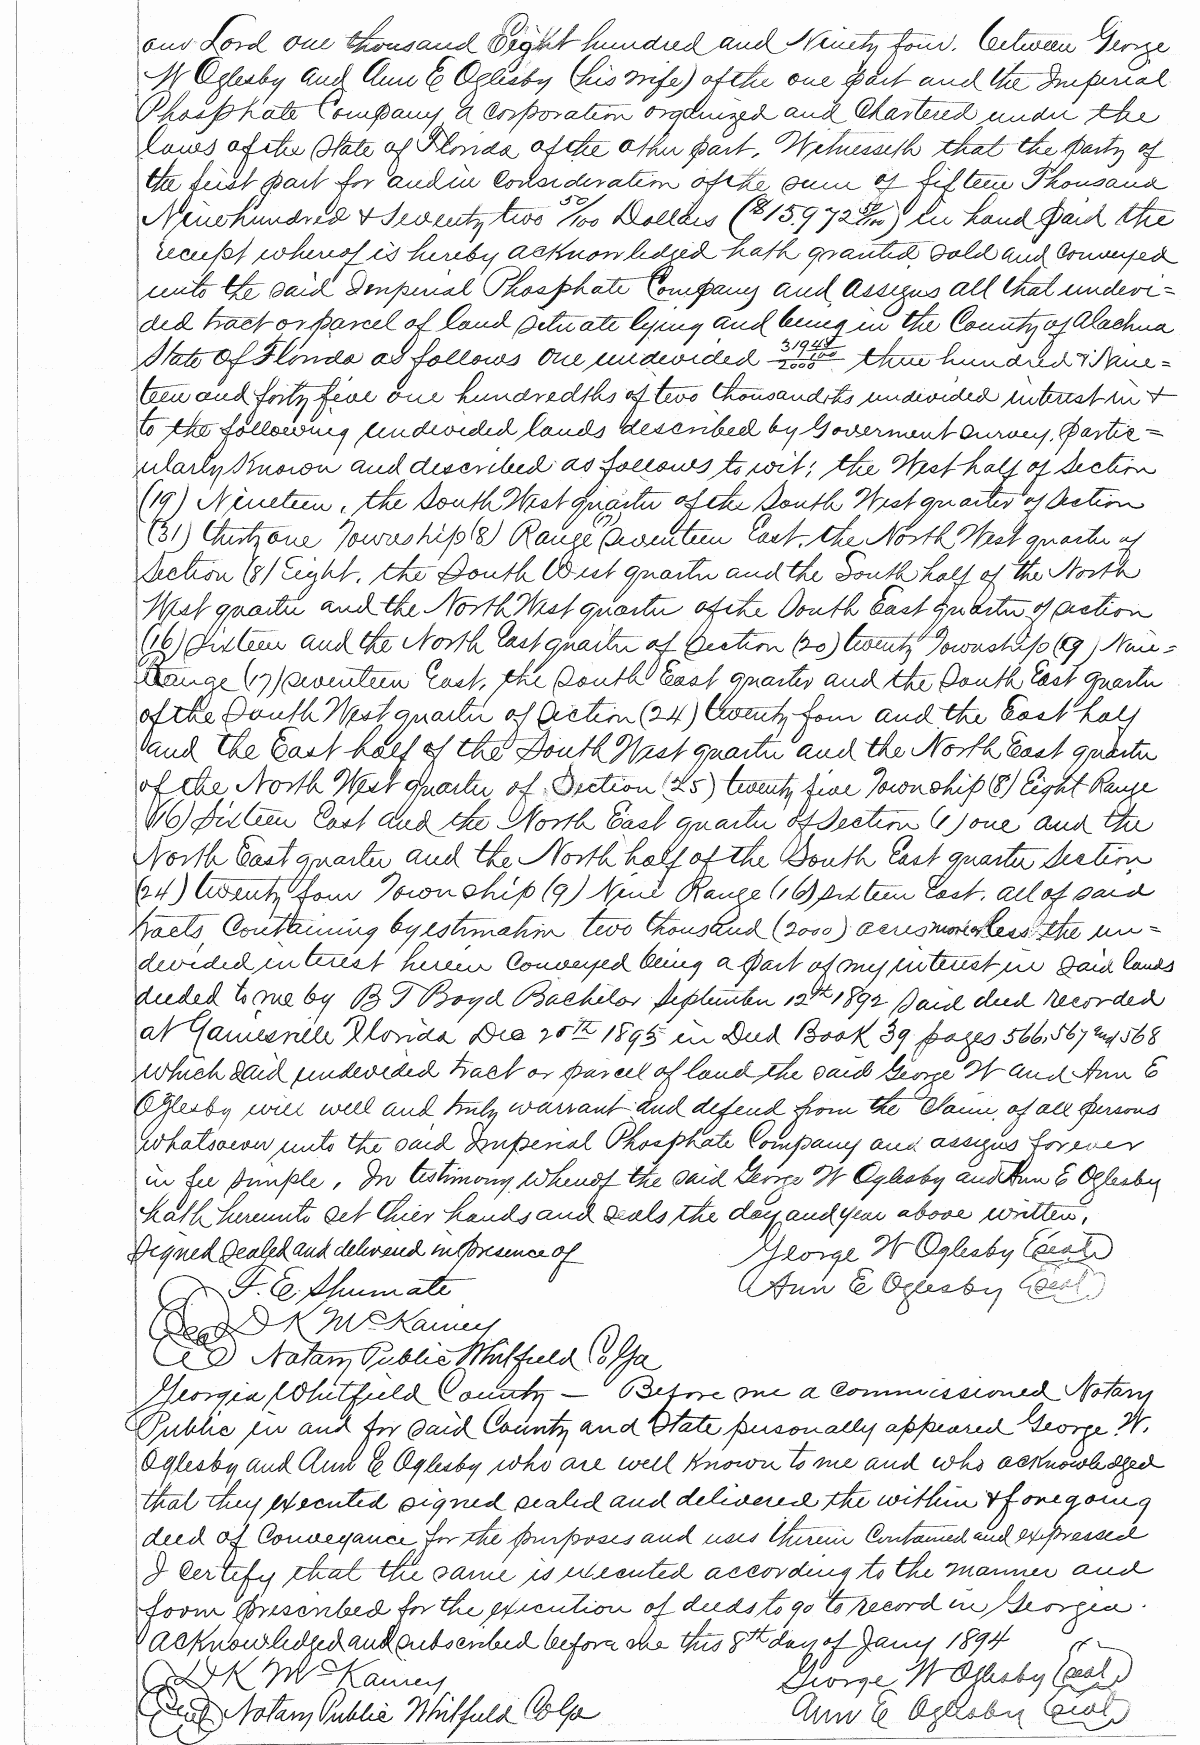 our Lord one thousand Eight hundred and Ninety four. between George
W Oglesby and Ann E Oglesby (his wife) of the one part and the Imperial
Phosphate Company, a corporation organized and Chartered under the
laws of the State of Florida of the other part. Witnesseth that the party of
the first part for and in consideration of the sum of fifteen Thousand
Nine hundred & Seventy two 50/100 Dollars ($15.972 50/100) in hand paid the
receipt whereof is hereby acknowledged hath granted, sold and conveyed
unto the said Imperial Phosphate Company and assigns all that undevi=
ded tract or parcel of land situate lying and being in the County of Alachua
State of Florida as follows one undevided three hundred & Nine=
teen and forty five one hundredths of two thousandths undevided interest in &
to the following undevided lands described by Goverment survey, partic=
ularly Known and described as follows to wit; the West half of Section
(19) Nineteen, the South West quarter of the South West quarter of Section
(31) thirty one Township (8) Range (17) Seventeen East, the North West quarter of
Section (8) Eight, the South West quarter and the South half of the North
West quarter and the North West quarter of the South East quarter of section
(16) Sixteen and the North East quarter of Section (20) twenty Township (9) Nine=
Range (17) Seventeen East, the South East quarter and the South East quarter
of the South West quarter of Section (24) twenty four and the East half
and the East half of the South West quarter and the North East quarter
of the North West quarter of Section (25) twenty five Township (8) Eight Range
(16) Sixteen East and the North East quarter of Section (1) one and the
North East quarter and the North half of the South East quarter Section
(24) twenty four Township (9) Nine Range (16) sixteen East. all of said
tracts, Containing by estimation two thousand (2000) acres more or less the un=
devided interest herein Conveyed being a part of my interest in said lands
deeded to me by B T Boyd Bachelor September 12th 1892 said deed recorded
at Gainesville Florida Dec 20th 1893 in Deed Book 39 pages 566, 567 and 568
which said undevided tract or parcel of land the said George W and Ann E
Oglesby will well and truly warrant and defend from the Claim of all persons
whatsoever unto the said Imperial Phosphate Company and assigns forever
in fee simple. In testimony whereof the said George W Oglesby and Ann E Oglesby
hath hereunto set thier hands and seals the day and year above written.
Signed sealed and delivered in presence of George W Oglesby (seal)
T. E. Shumate Ann E Oglesby (seal)
(Seal) D K McKamey
Notary Public Whitfield Co Ga
Georgia Whitfield County — Before me a commissioned Notary
Public in and for said County and State personally appeared George W.
Oglesby and Ann E Oglesby who are well Known to me and who acknowledged
that they executed signed sealed and delivered the within & foregoing
deed of Conveyance for the purposes and uses therein Contained and expressed
I certify that the same is executed according to the manner and
form prescribed for the execution of deeds to go to record in Georgia.
Acknowledged and subscribed before me this 8th day of Jany 1894
D K McKamey George W Oglesby (seal)
(Seal) Notary Public Whitfield Co Ga Ann E Oglesby (seal)